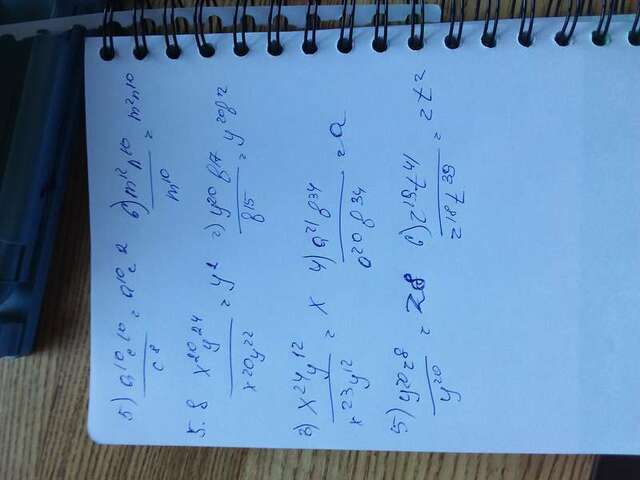 5) a¹⁰c¹⁰/c⁸ = a¹⁰c² 6) m¹²n¹⁰/m¹⁰ = m²n¹⁰
5.8 x²⁰y²⁴/x²⁰y²² = y² 2) y²⁰b¹⁷/b¹⁵ = y²⁰b²
3) x²⁴y¹²/x²³y¹² = x 4) a²¹b³⁴/a²⁰b³⁴ = a
5) y²⁰z⁸/y²⁰ = z8 6) z¹⁹t⁴¹/z¹⁸t³⁹ = zt²